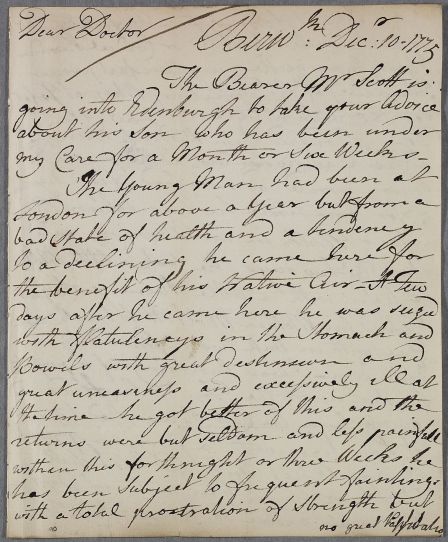 Dear Doctor
Berwk: Decr: 10 - 1775
The Bearer Mr Scott is
going into Edenburgh to take your Advice
about his Son who has been under
my Care for a Month or Six Weeks -
The Young Man had been at
London for above a Year but from a
bad State of health and a tendency
to a declining he came here for
the benefit of his Native Air - A Few
days after he came here he was seized
with Flatulencys in the Stomach and
Bowils with great and
great uneasiness and excessively ill at
the time he got better of this and the
returns were but Seldom and less painfull
within this forthnight or three Weeks he
has been Subject to frequent faintings
with a total prostration of Strength but
no great